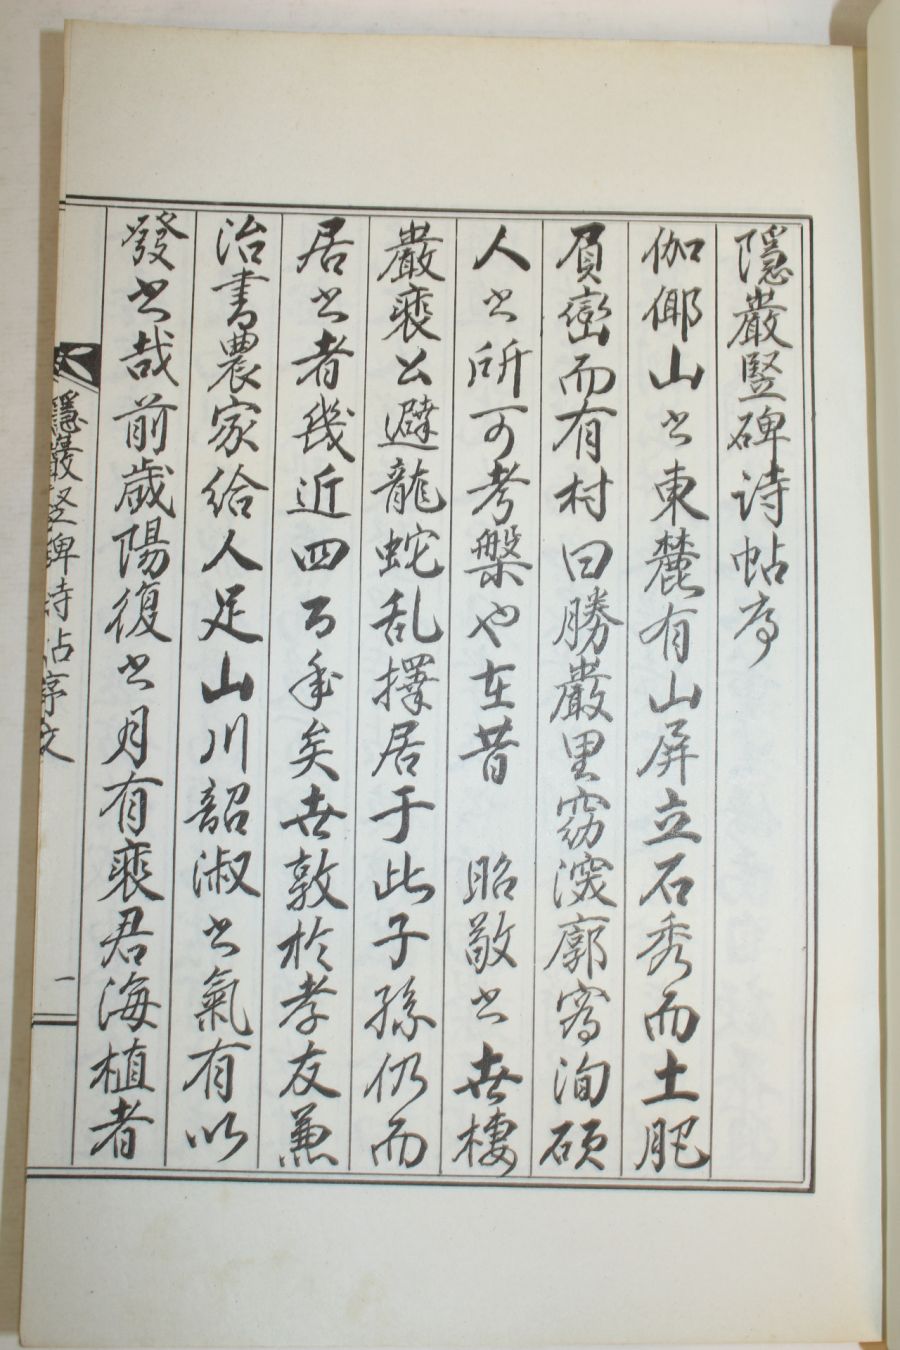 隱巖竪碑詩帖序
伽倻山之東麓有山屏立石秀而土肥
負巒而有村曰勝巖里窈深廓寬洵碩
人之所可考槃也在昔 昭敬之世棲
巖裵公避龍蛇乱擇居于此子孫仍而
居之者幾近四百年矣世敦於孝友兼
治書農家給人足山川韶淑之氣有以
發之哉前歲陽復之月有裵君海植者
隱巖竪碑詩帖序文
一